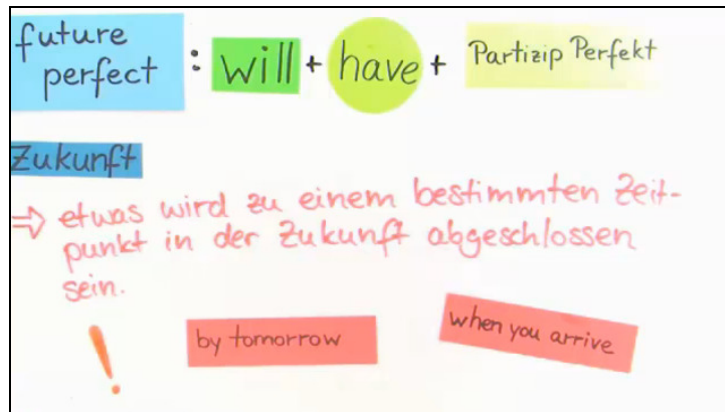 future perfect : will + have + Partizip Perfekt
Zukunft
⇒ etwas wird zu einem bestimmten Zeit-
punkt in der Zukunft abgeschlossen
sein.
! by tomorrow when you arrive